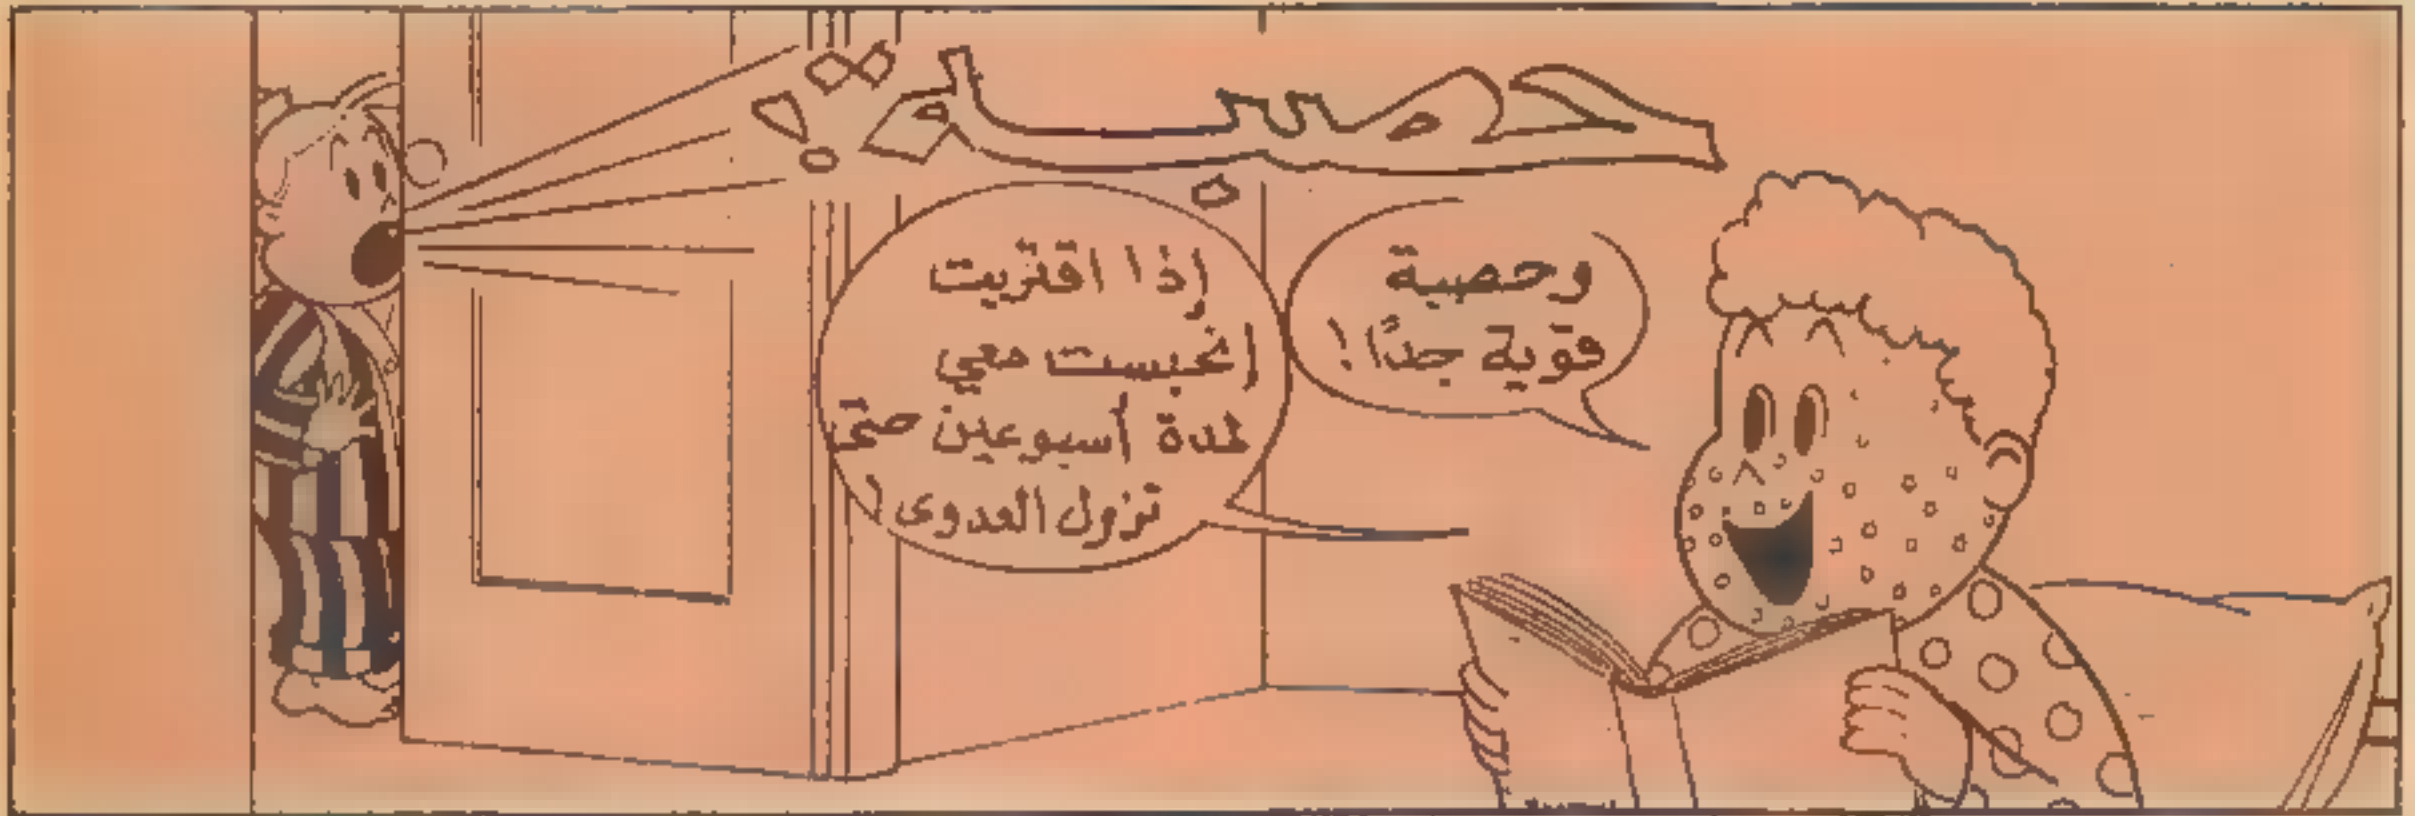 حصبة؟!
وحصبة
قوية جدًا!
إذا اقتربت
انحبست معي
لمدة أسبوعين حتى
تزول العدوى!